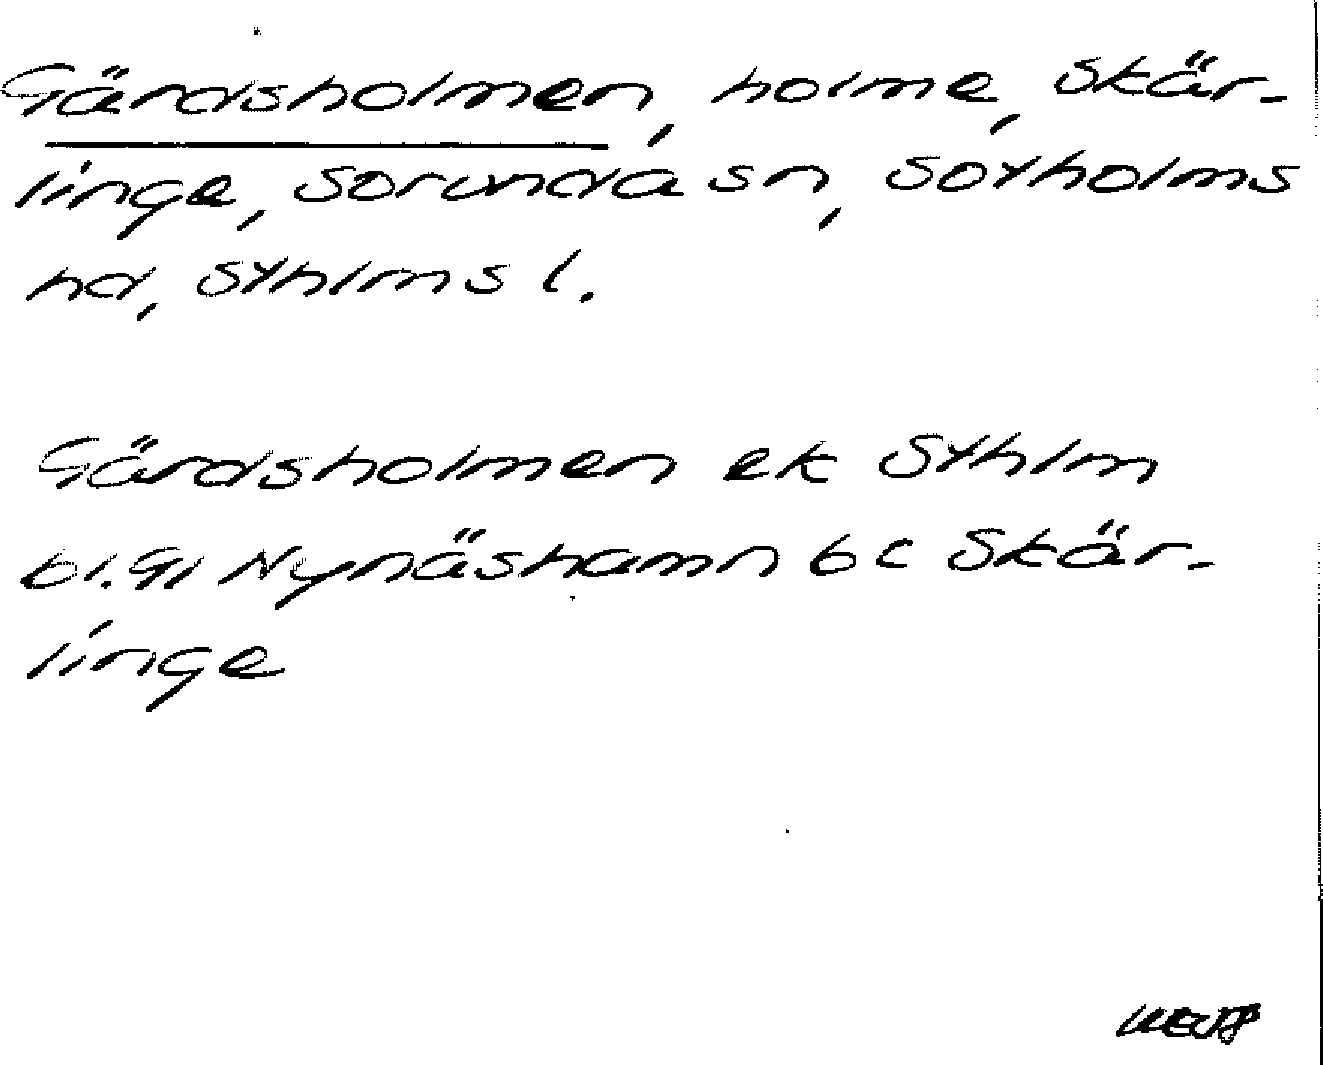 Gärdsholmen, holme, Skär-
linge, Sorunda sn, Sotholms
hd, Sthlms l.
Gärdsholmen ek Sthlm
bl. 91 Nynäshamn 6 c Skär-
linge